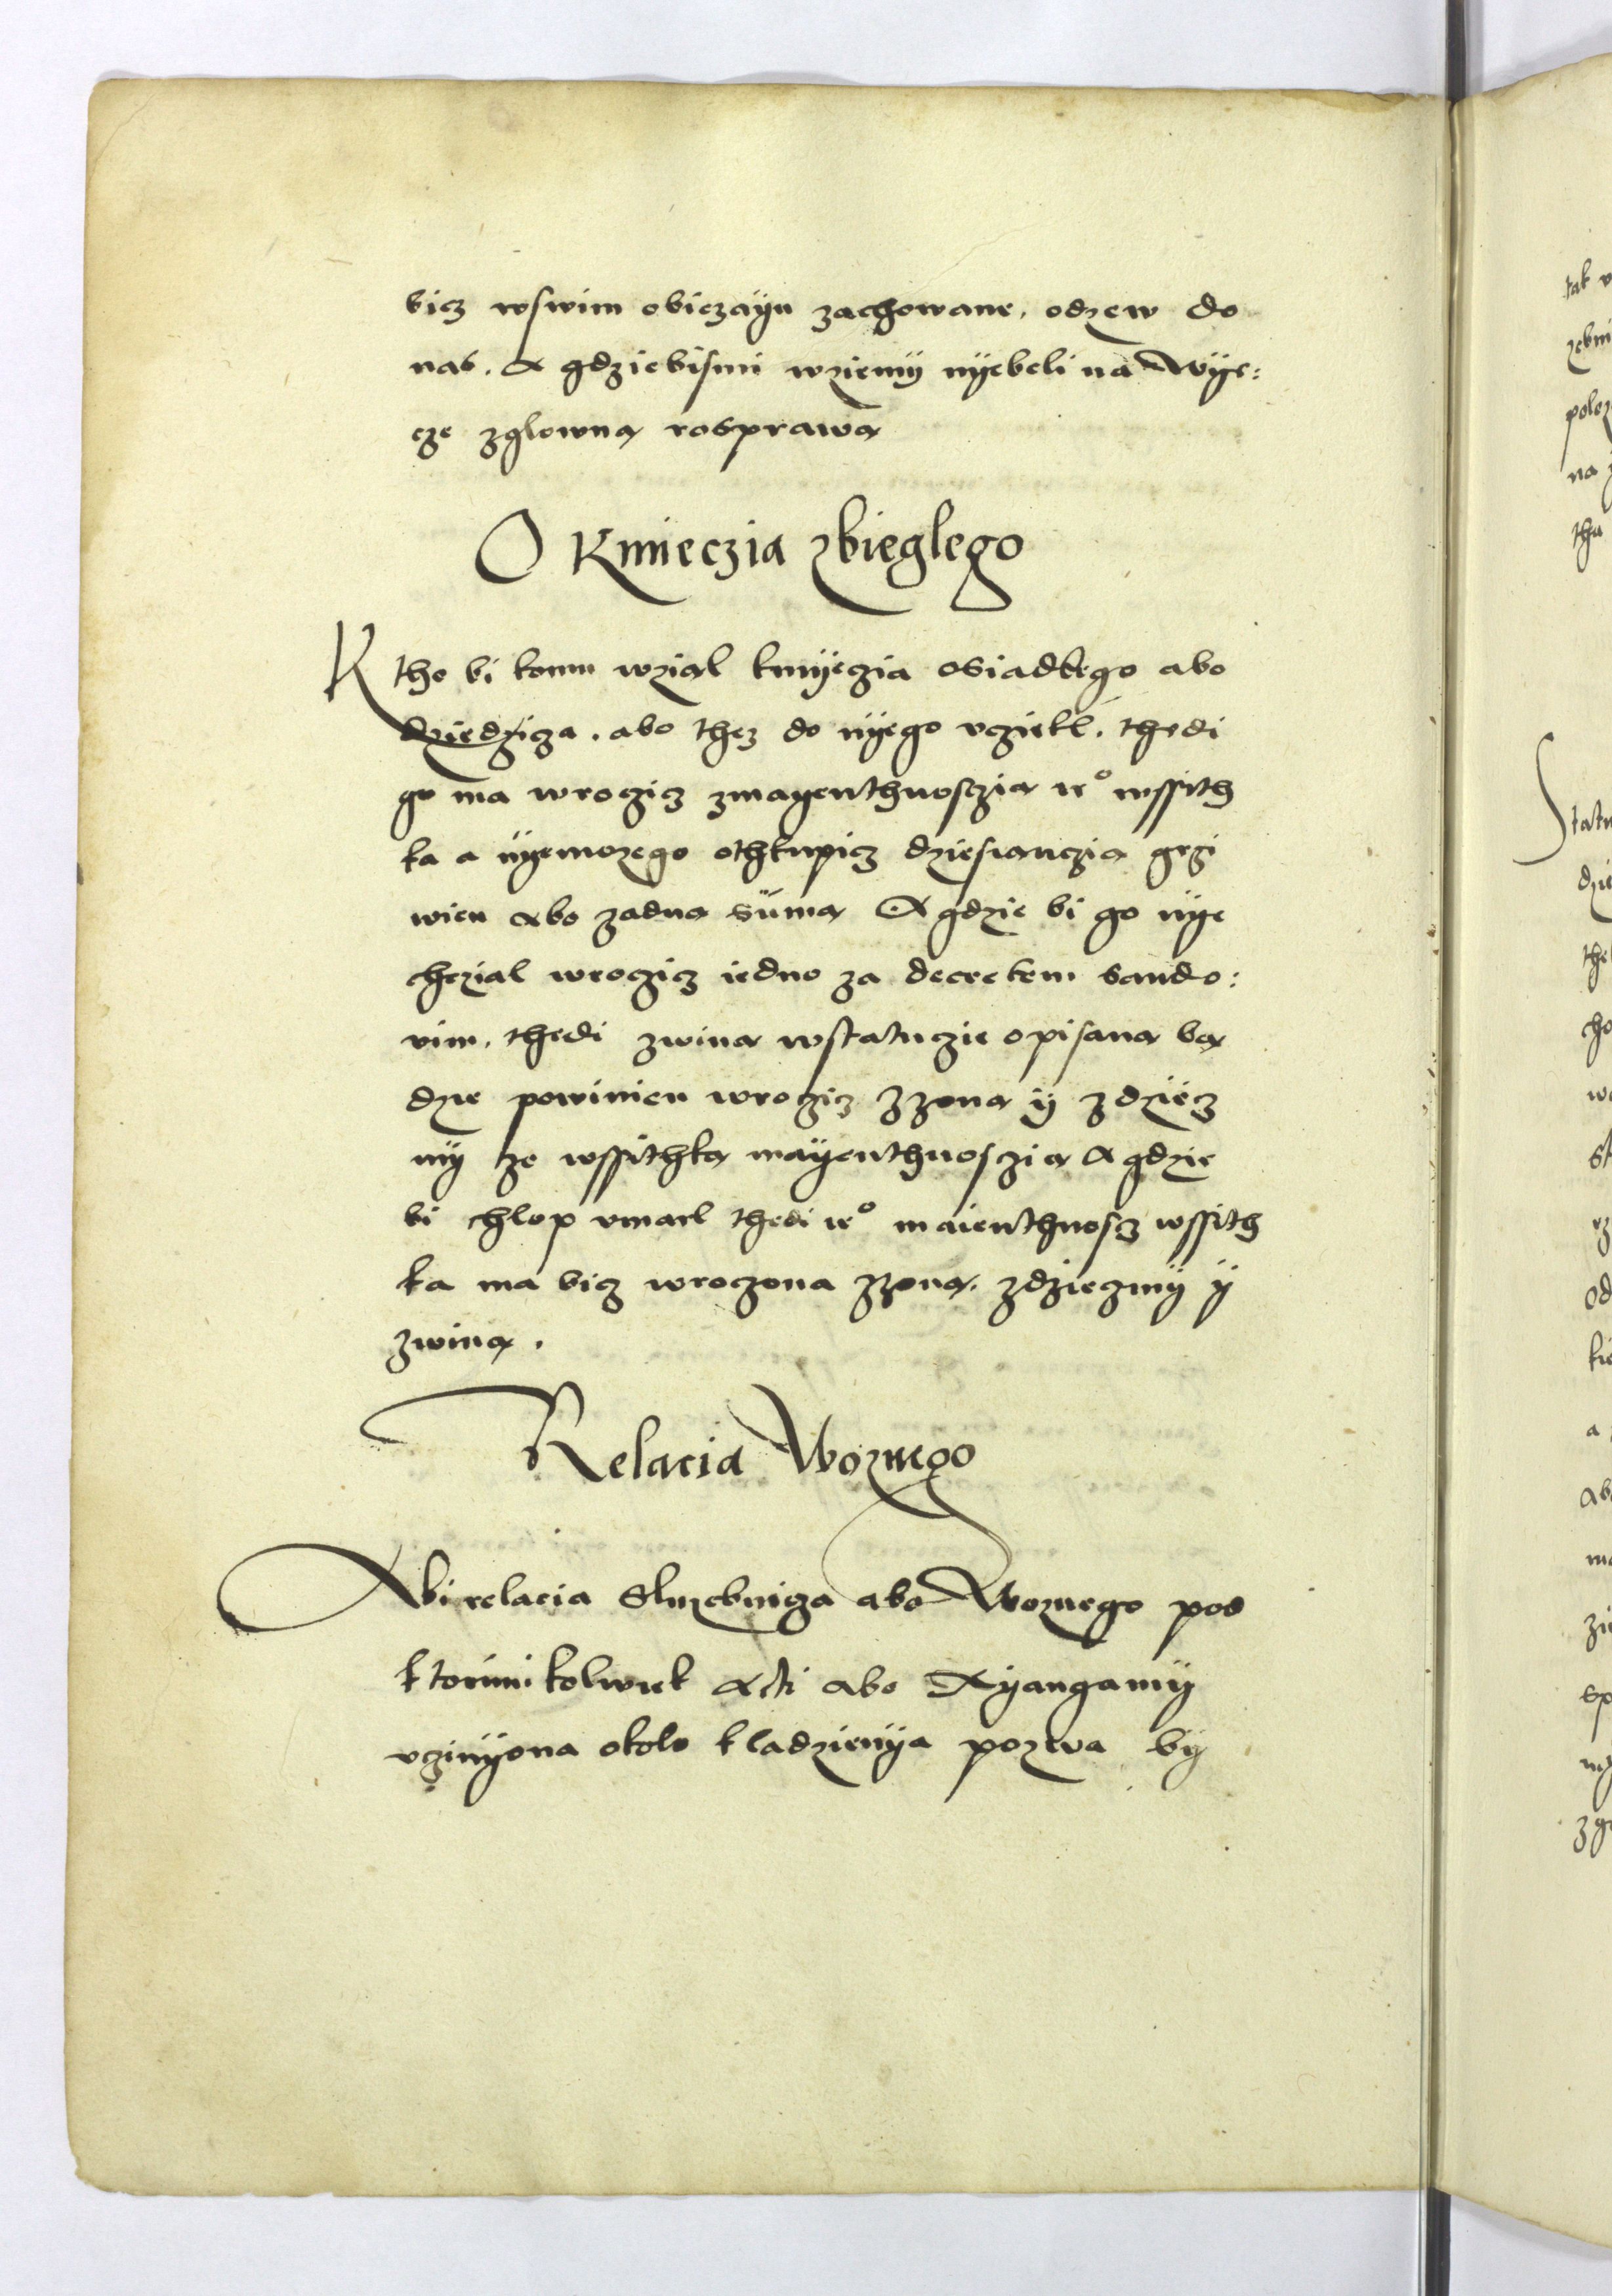 bicz wswim obiczayu zachowane, odzew do
nas. A gdziebismi wziemÿ nÿebeli na WÿE:
cze zglowną rosprawą
O Kmieczia zbieglego
Ktho bi komu wziąl kmÿeczia osiadlego abo
dziedzicza. abo thez do nÿego vciekl. thedi
go ma wroczicz zmayenthnosczią ieº wssith
ką a nÿemozego othkupicz dziesianczią grzi
wien abo zadną sumą A gdzie bi go nÿe
chczial wroczicz iedno za decretem sando:
vim. thedi zwiną wstatuczie opisaną bą
dzie powinien wroczicz zzoną ÿ zdziecz
mÿ ze wssithką mayenthnosczią A gdzie
bi chlop vmarl thedi ieº maienthnoscz wssith
ka ma bicz wroczona zzoną. zdzieczmÿ ÿ
zwiną.
Relacia Woznego
Abi relacia Sluzebnicza abo Woznego pod
ktorimikolwiek Acti abo Xyangamÿ
vczinÿona okolo kladzienÿa pozwa bÿ
tak
zebmi
poloz
na
tha
Statu
dzie
cho
od
kie
a
abo